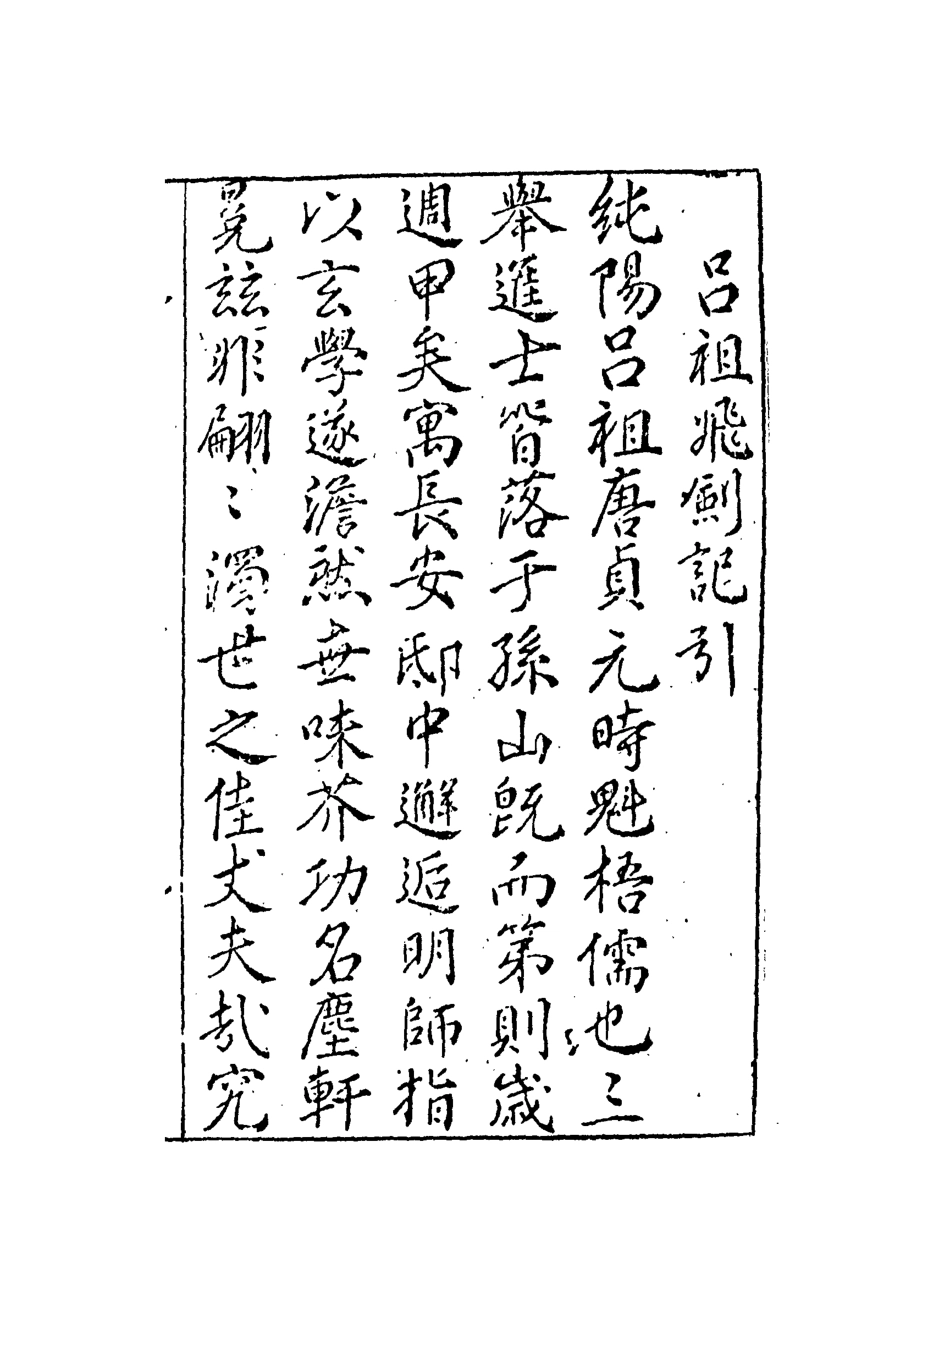 呂祖飛劍記引
純陽呂祖唐貞元時魁梧儒也三
舉進士皆落于孫山旣而第則歲
週甲矣寓長安邸中邂逅明師指
以玄學遂澹然無味芥功名塵軒
冕玆非翩〻濁世之佳丈夫哉究